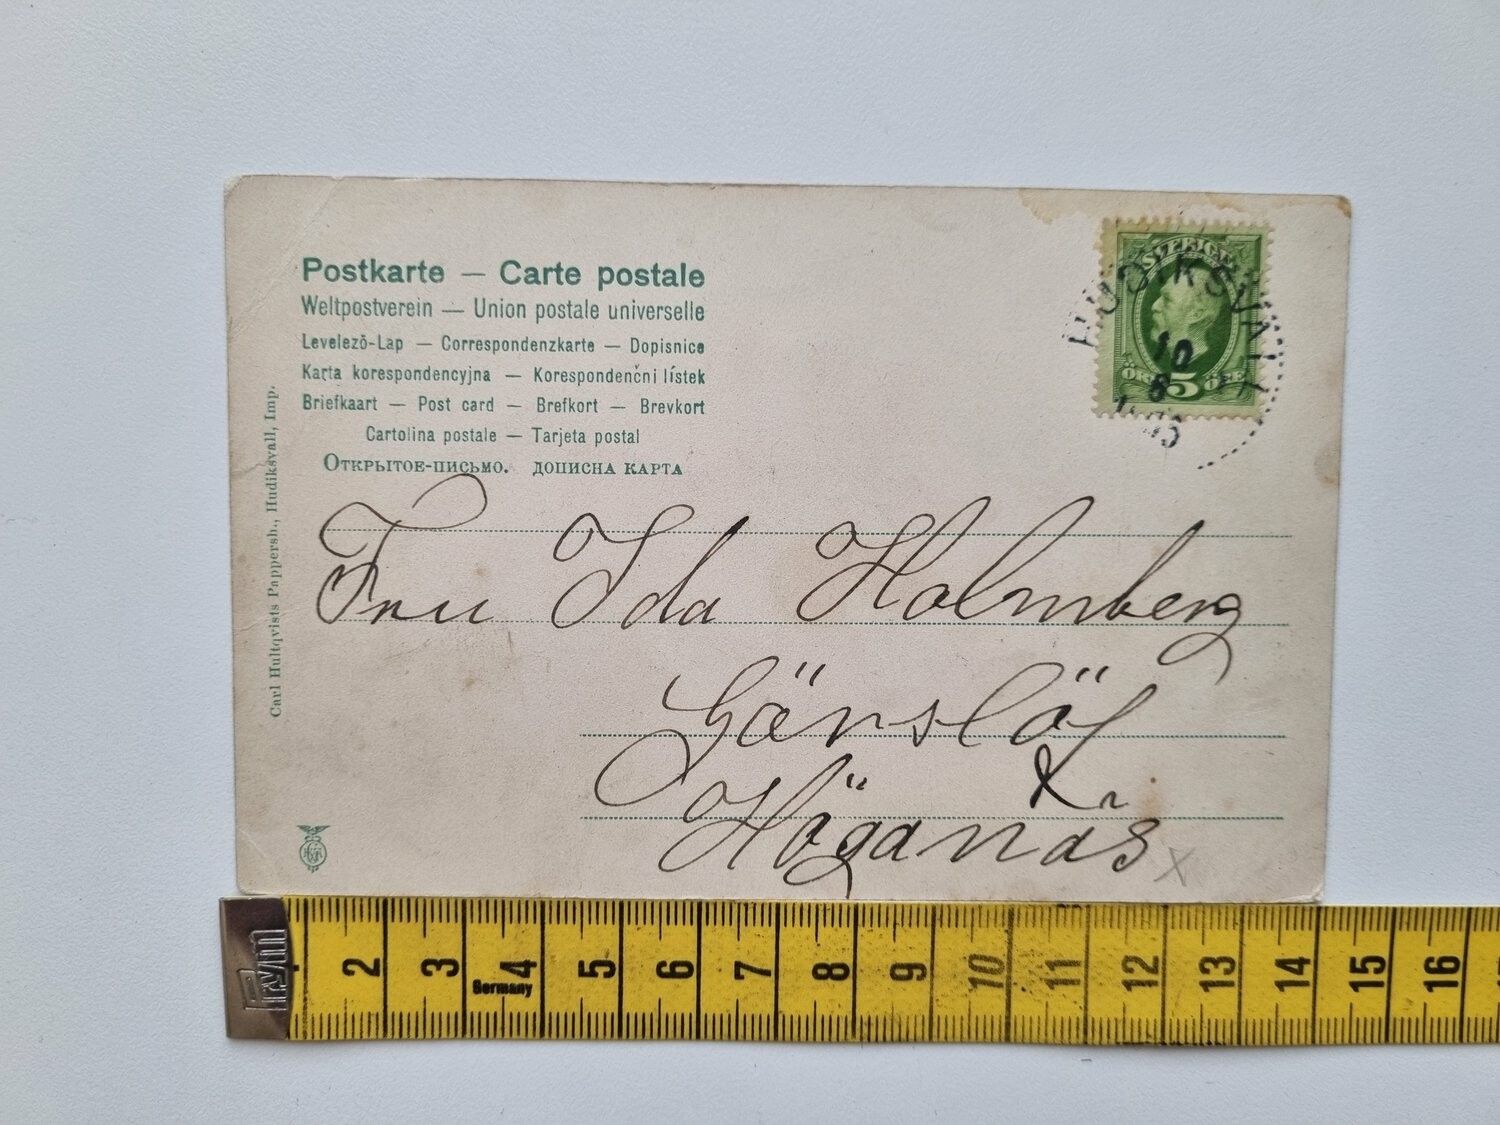 Postkarte — Carte postale
Weltpostverein — Union postale universelle
Levelezõ-Lap — Correspondenzkarte — Dopisnice
Karta korespondencyjna — Korespondenčni lístek
Briefkaart — Post card — Brefkort — Brevkort
Cartolina postale — Tarjeta postal
Открытое-письмо. дописна карта
Carl Hultqvists Pappersh., Hudiksvall, Imp.
SVERIGE
5
ÖRE ÖRE
HUDIKSVALL
10
8
Fru Ida Holmberg
Gänslöf
Höganäs
2 3 4 5 6 7 8 9 10 11 12 13 14 15 16
Germany